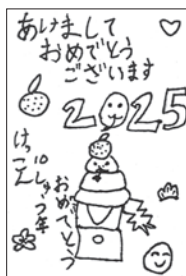 あけまして
おめでとう
ございます
2025
けっこん
10しゅう年
おめでとう